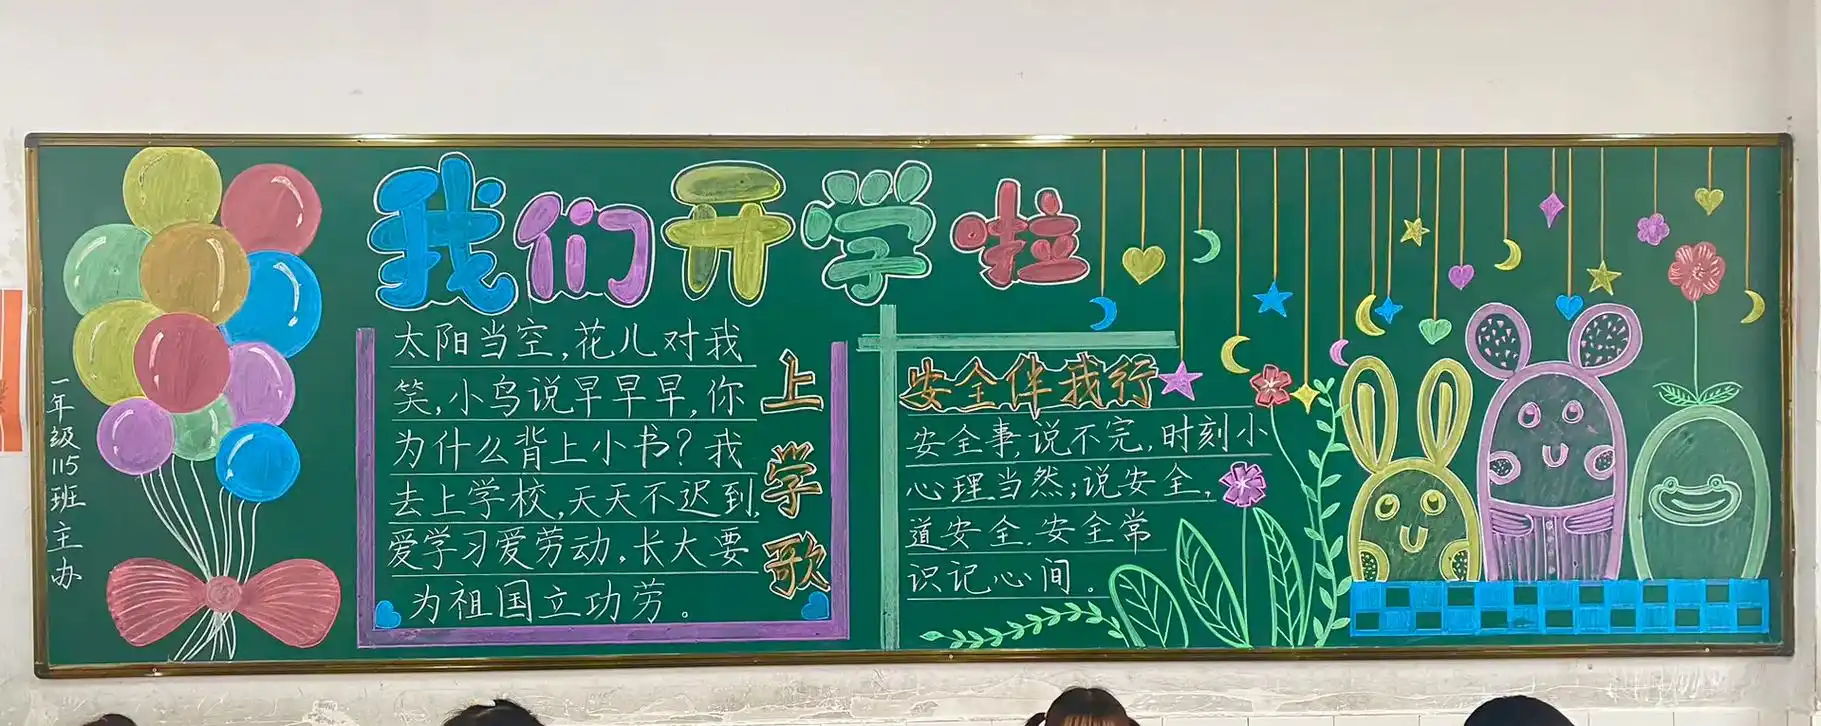 我们开学啦
一年级115班主办
上学歌
太阳当空,花儿对我
笑,小鸟说早早早,你
为什么背上小书?我
去上学校,天天不迟到,
爱学习爱劳动,长大要
为祖国立功劳。
安全伴我行
安全事,说不完,时刻小
心理当然;说安全,
道安全.安全常
识记心间。